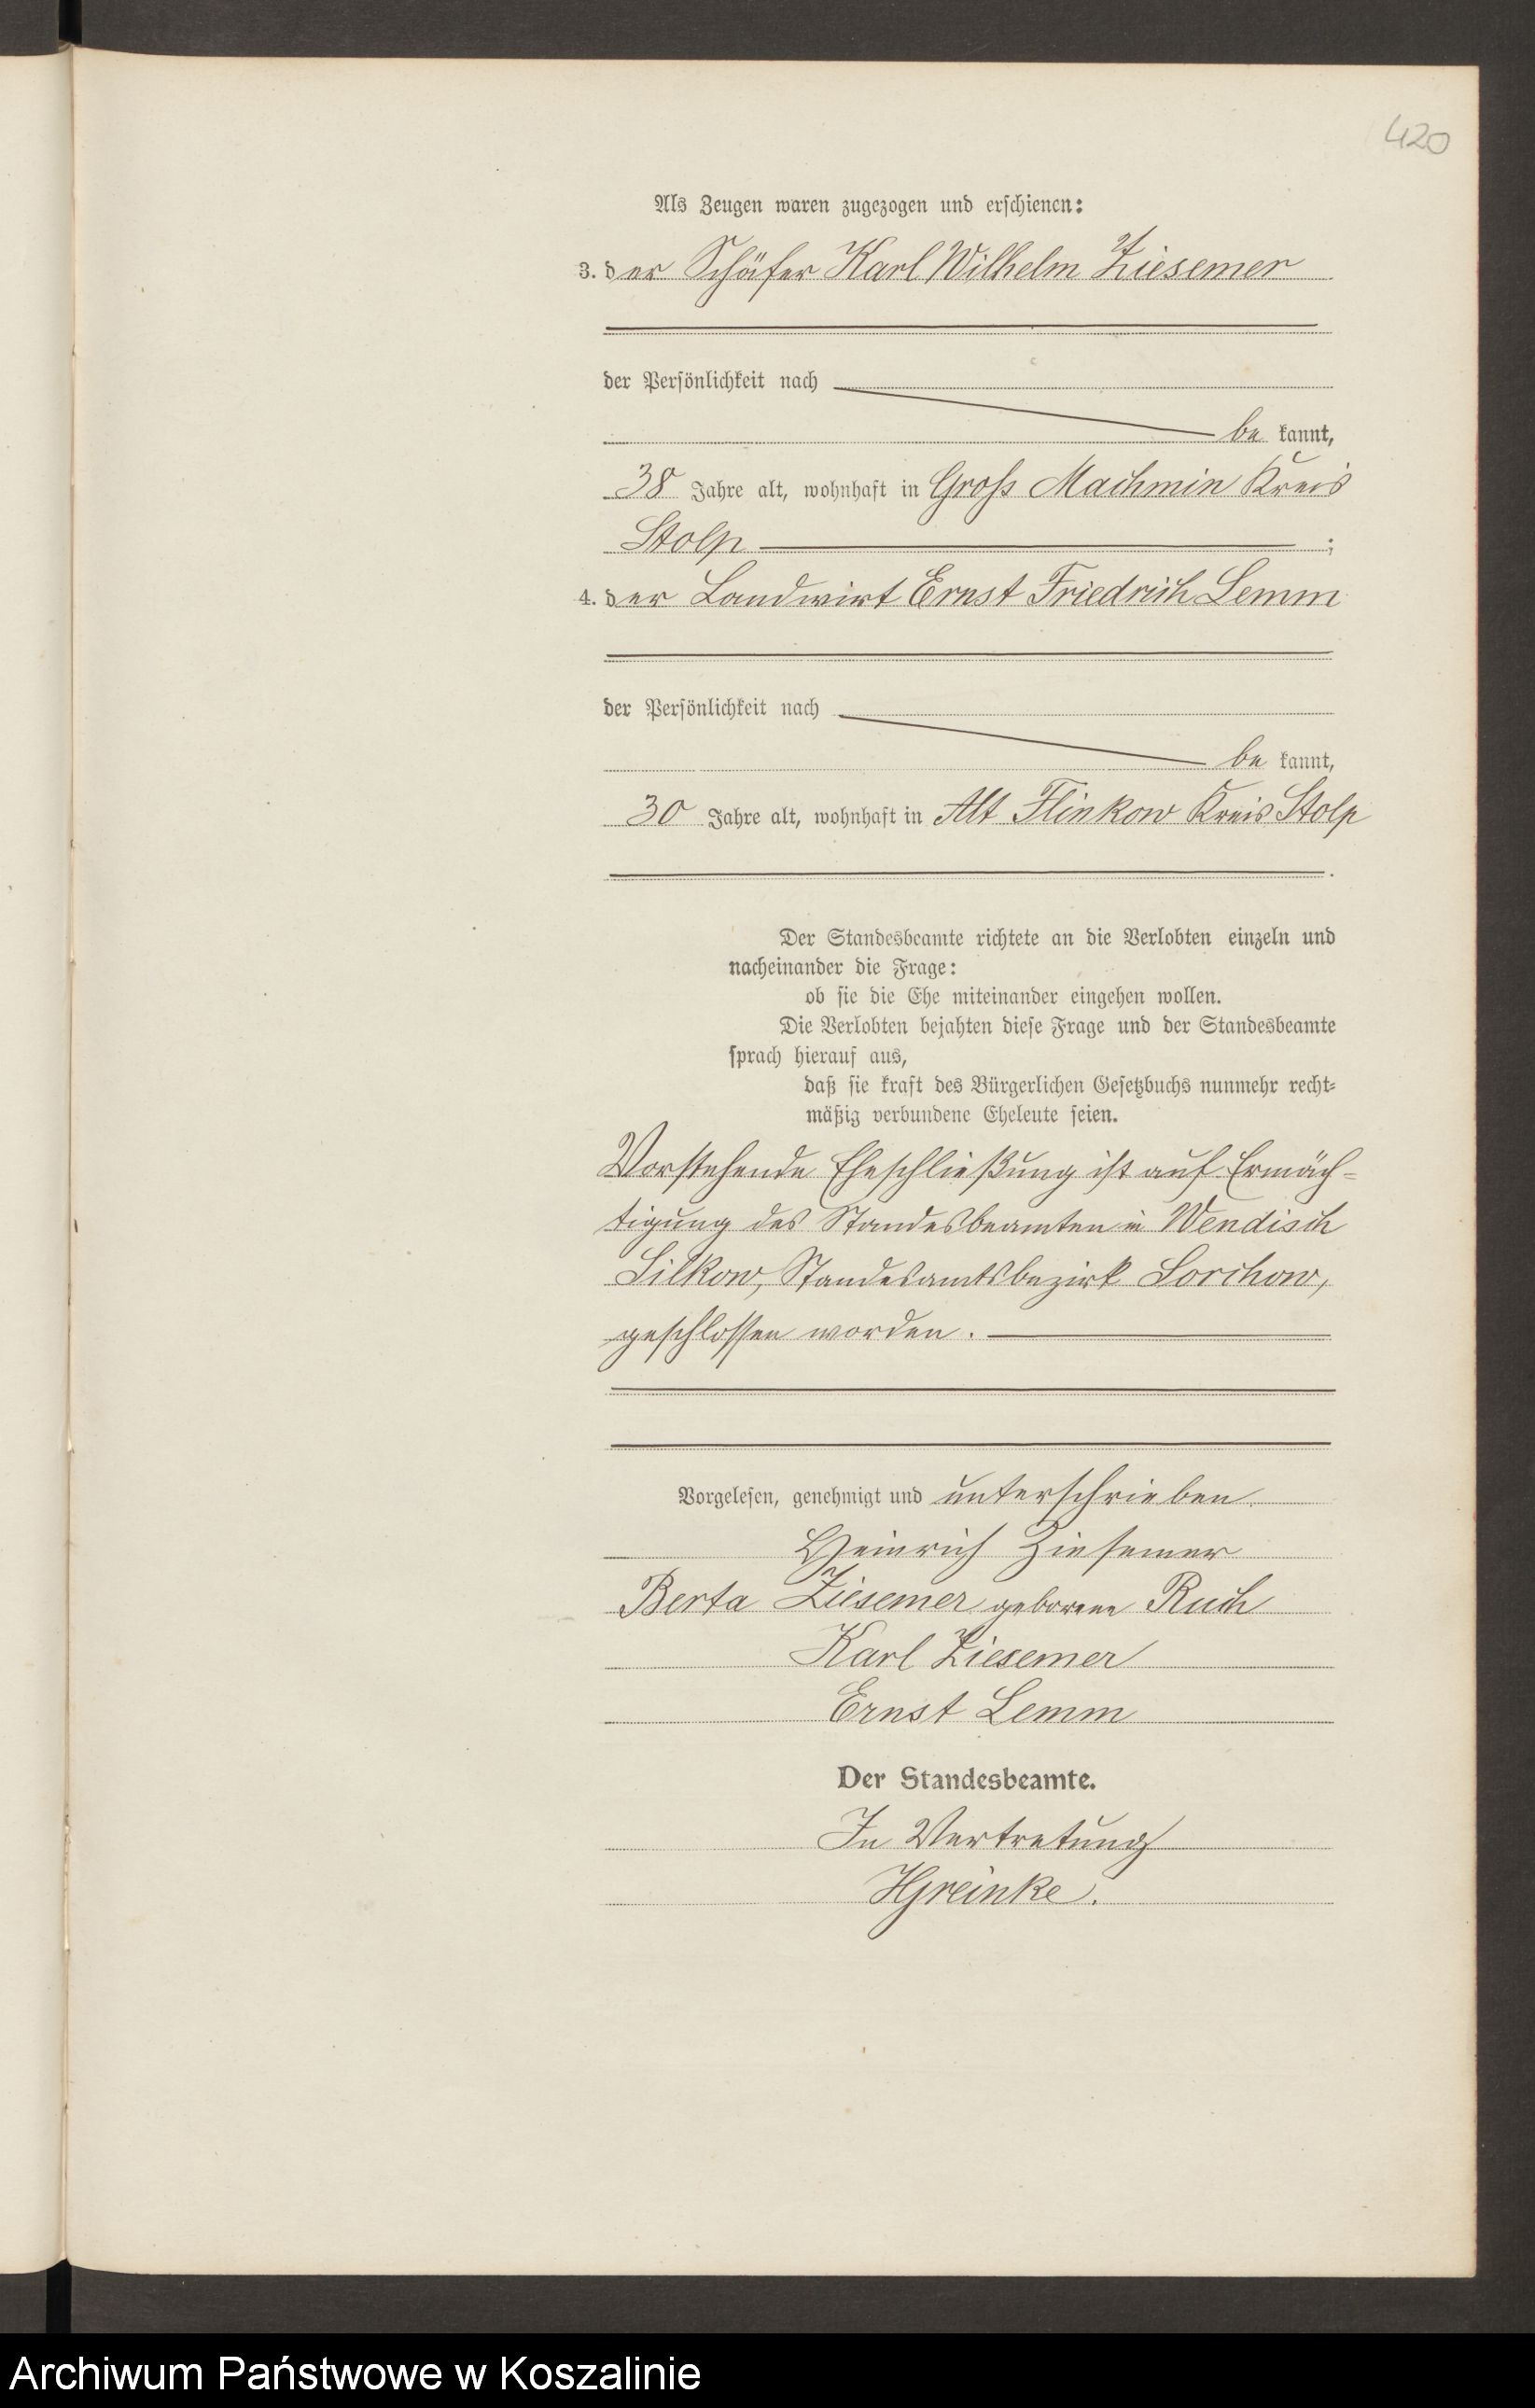 420
Als Zeugen waren zugezogen und erschienen:
3. der Schäfer Karl Wilhelm Ziesemer
der Persönlichkeit nach
be kannt,
38 Jahre alt, wohnhaft in Gross Machmin Kreis
Stolp ;
4. der Landwirt Ernst Friedrich Lemm
der Persönlichkeit nach
be kannt,
30 Jahre alt, wohnhaft in Alt Flinkow Kreis Stolp
.
Der Standesbeamte richtete an die Verlobten einzeln und
nacheinander die Frage:
ob sie die Ehe miteinander eingehen wollen.
Die Verlobten bejahten diese Frage und der Standesbeamte
sprach hierauf aus,
daß sie kraft des Bürgerlichen Gesetzbuchs nunmehr recht-
mäßig verbundene Eheleute seien.
Vorstehende Eheschließung ist auf Ermäch-
tigung des Standesbeamten in Wendisch
Silkow, Standesamtsbezirk Sorchow,
geschlossen worden.
Vorgelesen, genehmigt und unterschrieben
Heinrich Ziesemer
Berta Ziesemer geborene Ruch
Karl Ziesemer
Ernst Lemm
Der Standesbeamte.
In Vertretung
HGreinke.
Archiwum Państwowe w Koszalinie